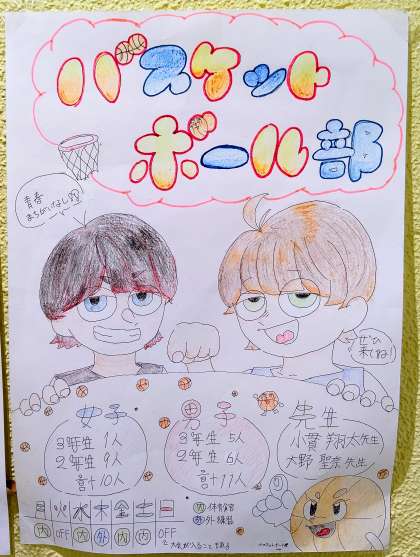 バスケット
ボール部
青春
まちがいなし!!
ぜひ
来てね!
女子
3年生 1人
2年生 9人
計10人
男子
3年生 5人
2年生 6人
計11人
先生
小貫 翔太先生
大野 聖奈先生
月 火 水 木 金 土 日
内 OFF 内 外 内 内 OFF
内 体育館
外 外練習